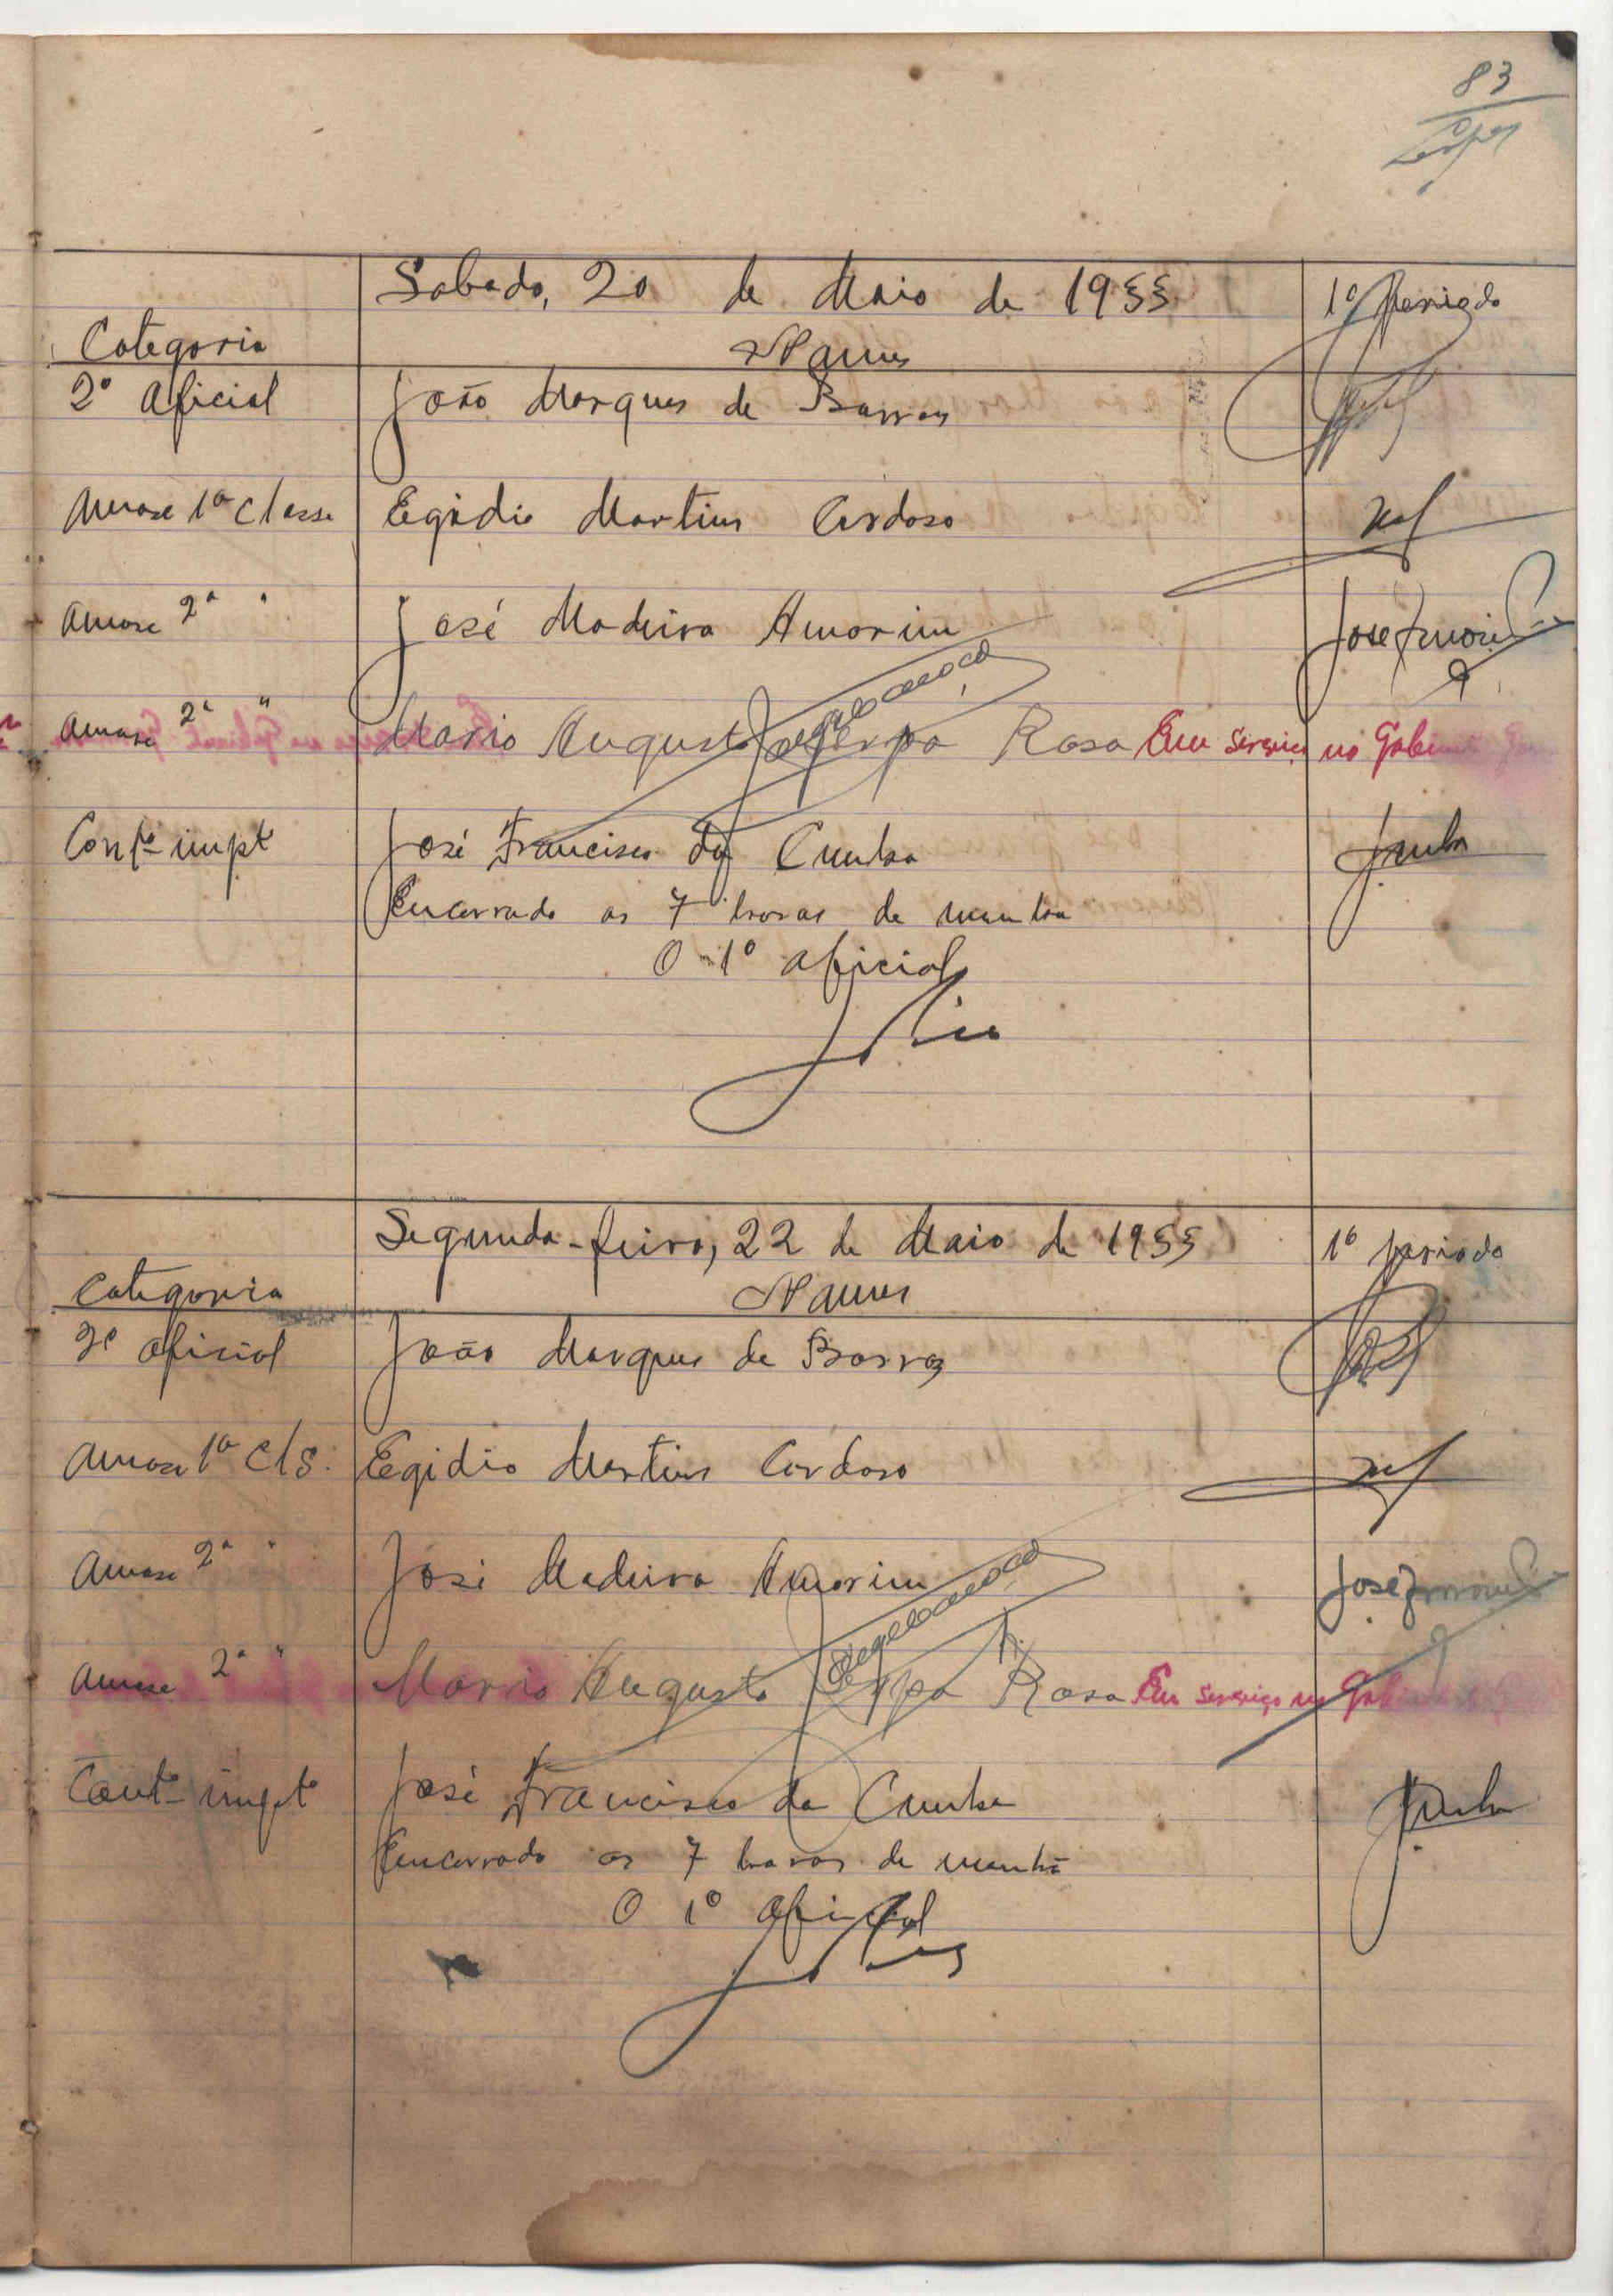 83
Sabado, 20 de Maio de 1955 1º Periodo
Categoria Nomes
2º Oficial João Marques de Barros
1ª Classe Egidio Martins Cardoso
2ª " José Madeira Amorim José Amorim
2ª " Mario Augusto Serpa Rosa Em serviço no Gabinete
impt José Francisco da Cunha JCunha
Encerrado as 7 horas de manha
O 1º Oficial
Segunda-feira, 22 de Maio de 1955 1º periodo
Categoria Nomes
2º Oficial João Marques de Barros
1ª Cls. Egidio Martins Cardoso
2ª " José Madeira Amorim José Amorim
2ª " Mario Augusto Serpa Rosa Em serviço no Gabinete
impto José Francisco da Cunha JCunha
Encerrado as 7 horas de manhã
O 1º Oficial